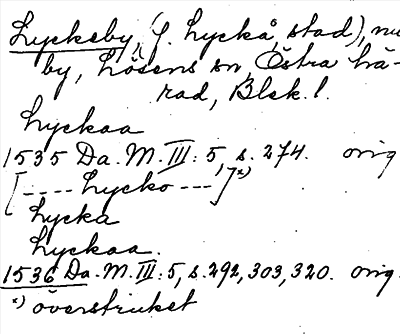 Lyckeby, (f. Lyckå, stad), nu
by, Lösens sn, Östra hä-
rad, Blek. l.
Lyckaa
1535 Da. M. III: 5, s. 274. orig
[---- Lycko ---] x)
Lycka
Lyckaa.
1536 Da. M. III: 5, s. 292, 303, 320. orig.
x) överstruket